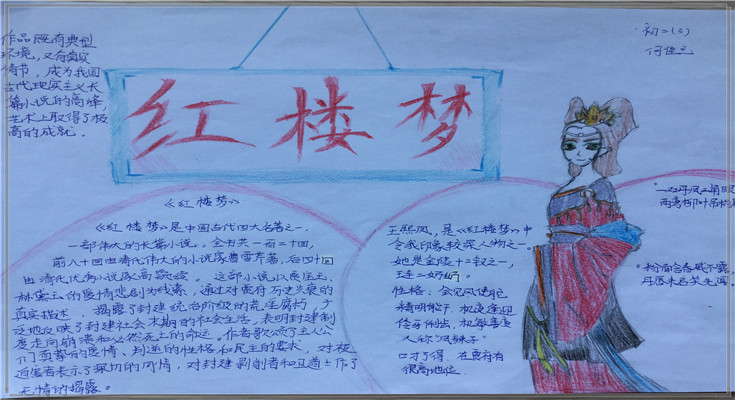 作品既有典型
环境,又有真实
情节,成为我国
古代现实主义长
篇小说的高峰,
艺术上取得了极
高的成就。
红楼梦
初二(6)
何佳
《红楼梦》
《红楼梦》是中国古代四大名著之一,
一部伟大的长篇小说。全书共一百二十回,
前八十回由清代伟大的小说家曹雪芹著,后四十回
由清代优秀小说家高鹗续。这部小说以贾宝玉、
林黛玉的爱情悲剧为线索,通过对贾府历史兴衰的
真实描述,揭露了封建统治阶级的荒淫腐朽,广
泛地反映了封建社会末期的社会生活,表明封建制
度走向崩溃和必然灭亡的命运。作者歌颂了主人公
们真挚的爱情、叛逆的性格和民主的要求,对被
迫害者表示了深切的同情,对封建剥削者和卫道士作了
无情的揭露。
王熙凤,是《红楼梦》中
令我印象较深人物之一。
她是金陵十二钗之一,
琏二奶奶。
性格:会见风使舵
精明能干,
口才了得,在贾府有
很高地位。
"一双丹凤三角眼
两弯柳叶吊梢眉
粉面含春威不露,
丹唇未启笑先闻。